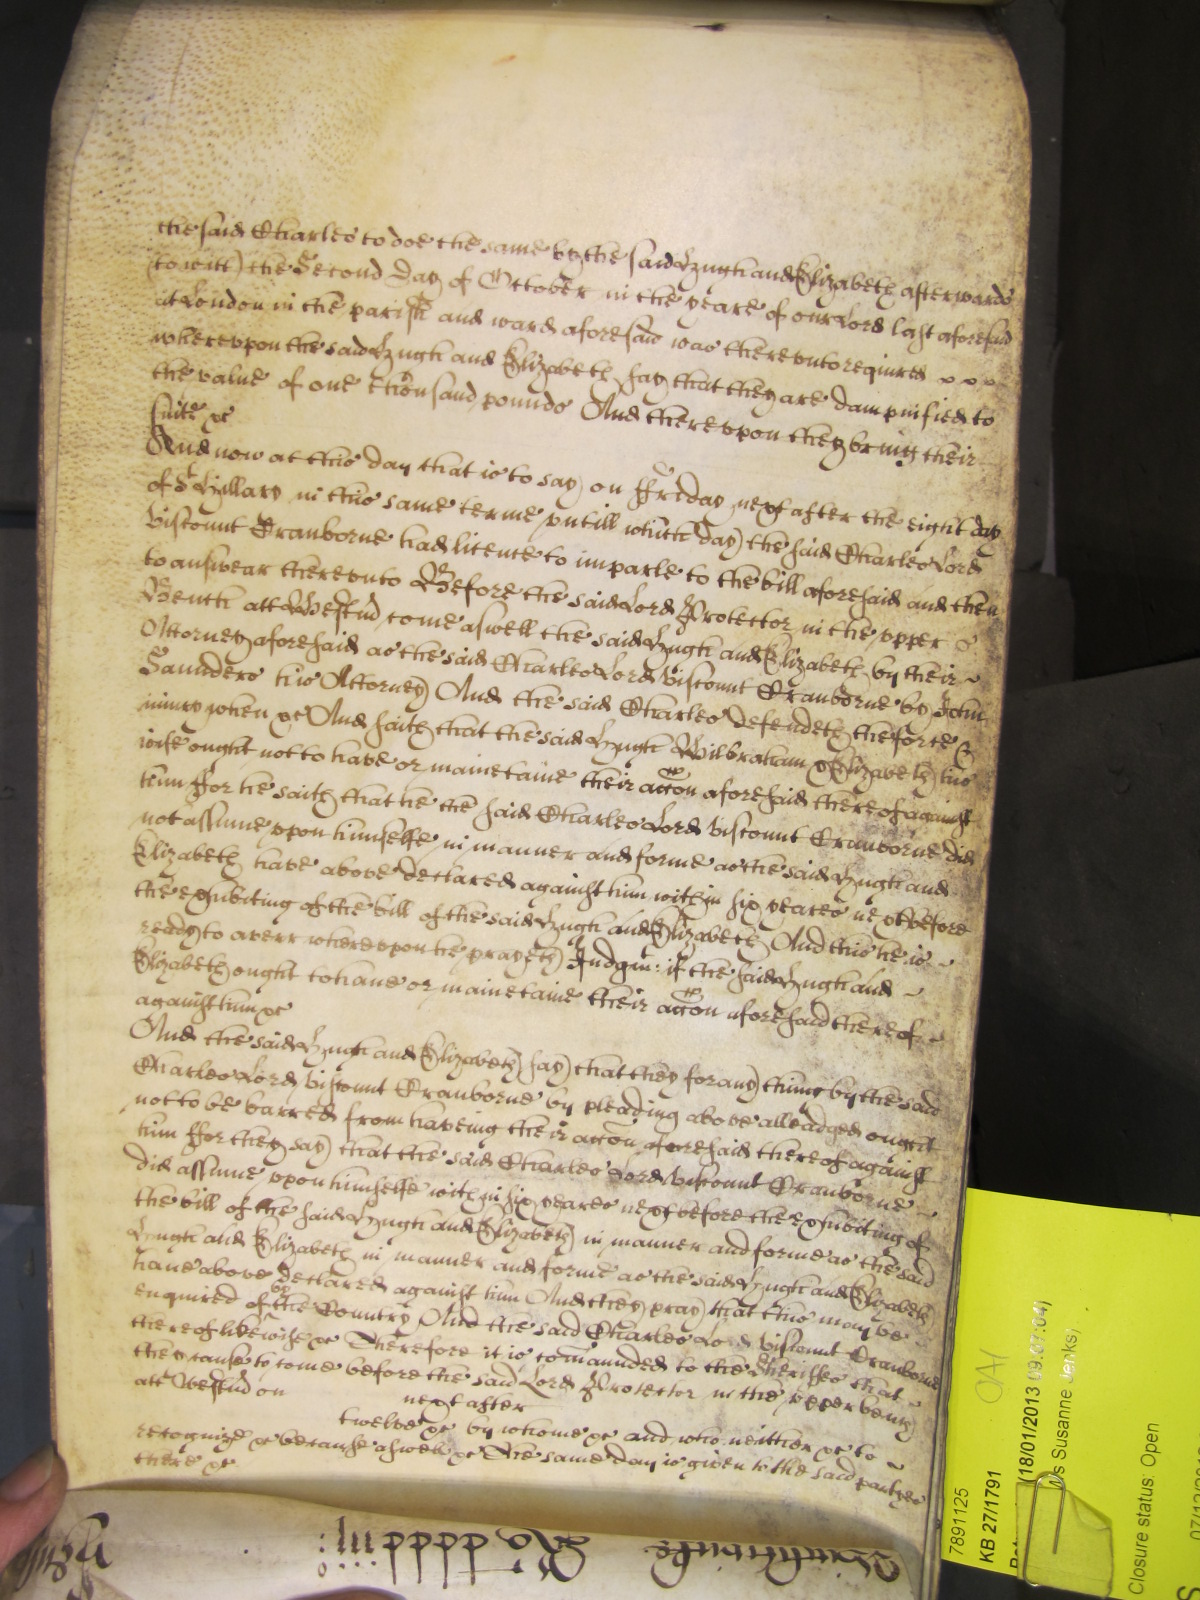 the said Charles to doe the same by the said Hugh and Elizabeth afterwards
(to witt) the Second day of October in the yeare of our Lord last aforesaid
att London in the parish and ward aforesaid was therevnto required
wherevpon the said Hugh and Elizabeth say that they are dampnified to
the value of one thousand pounds And therevpon they bring their
suite &c
And now at this day that is to say on ffriday next after the eight day
of St Hillary in this same terme vntill which day the said Charles Lord
Viscount Cranborne had licence to imparle to the bill aforesaid and then
to answear therevnto Before the said Lord Protector in the vpper
Bench att Westmr come aswell the said Hugh and Elizabeth by their
Attorney aforesaid as the said Charles Lord Viscount Cranborne by John
Saunders his Attorney And the said Charles defendeth the force &
iniury when &c And saith that the said Hugh Wilbraham & Elizabeth his
wife ought not to have or mainetaine their accon aforesaid thereof against
him ffor he saith that he the said Charles Lord Viscount Cranborne did
not assume vpon himselfe in manner and forme as the said Hugh and
Elizabeth have above declared against him within six yeares next before
the exhibiting of the bill of the said Hugh and Elizabeth And this he is
ready to averr wherevpon he prayeth Judgmt: if the said Hugh and
Elizabeth ought to haue or mainetaine their accon aforesaid thereof
against him &c
And the said Hugh and Elizabeth say that they for any thing by the said
Charles Lord Viscount Cranborne by pleading above alleadged ought
not to be barred from haveing their accon aforesaid thereof against
him ffor they say that the said Charles Lord Viscount Cranborne
did assume vpon himselfe within six yeares next before the exhibiting of
the bill of the said Hugh and Elizabeth in manner and forme as the said
Hugh and Elizabeth in manner and forme as the said Hugh and Elizabeth
haue above declared against him And they pray that this may be
enquired of by the Country And the said Charles Lord Viscount Cranborne
thereof likewise &c Therefore it is comaunded to the Sheriffes that
they cause to come before the said Lord Protector in the vpper bench
att Westmr on next after
twelve &c by whome &c and who neither &c to
recognize &c because aswell &c The same day is given to the said partyes
there &c
7891125
KB 27/1791
(18/01/2013 09:07:04)
s Susanne Jenks)
Closure status: Open